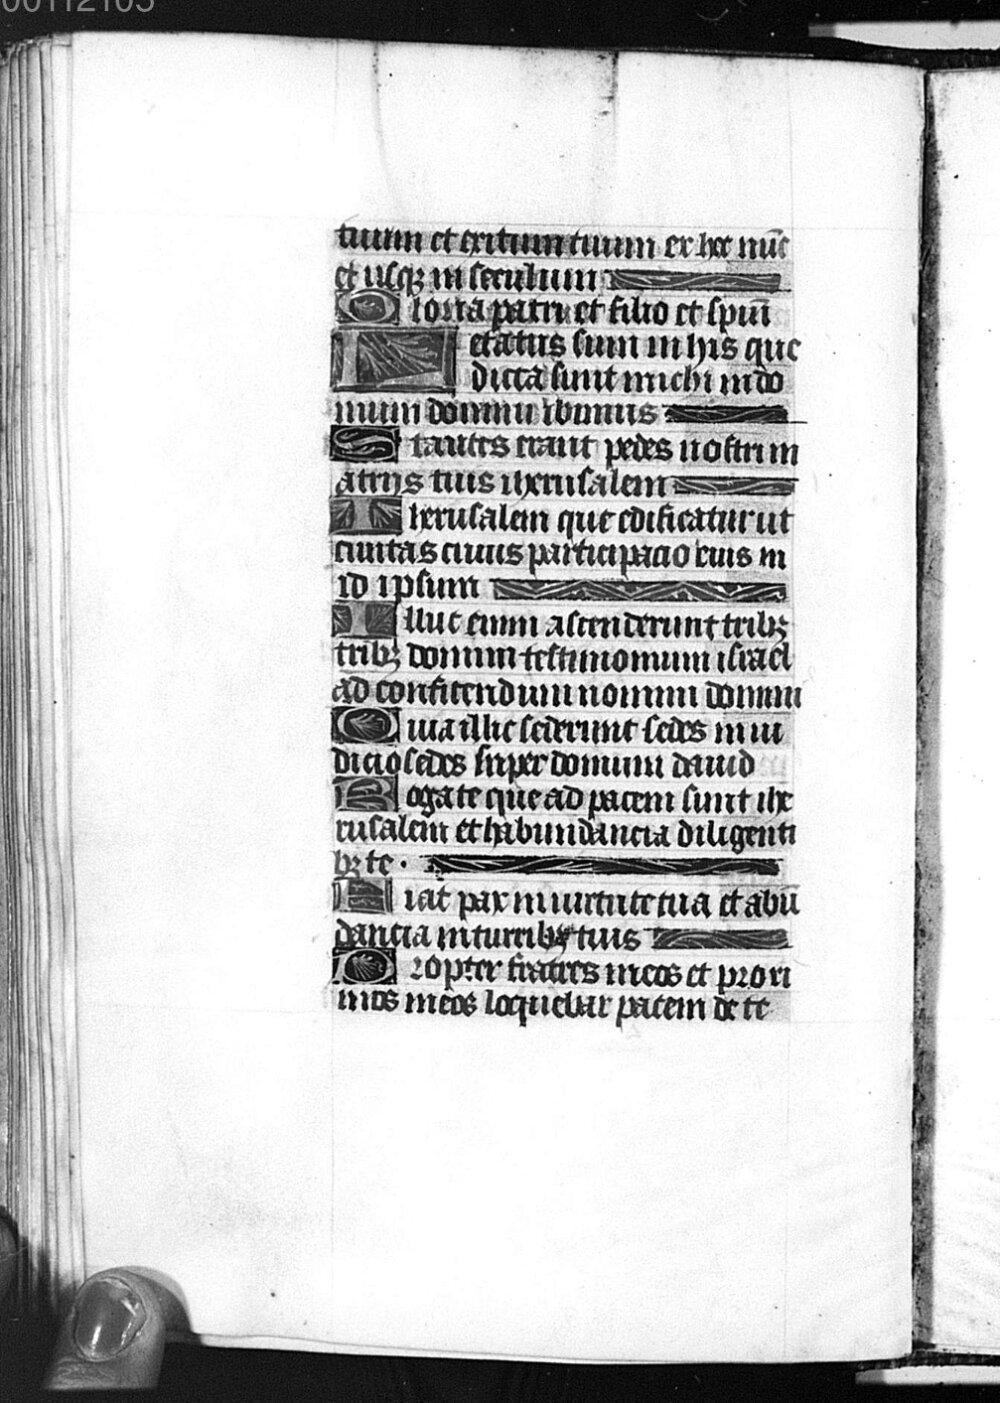 00112103
tuum et exitum tuum ex hoc nūc
et usqꝫ in seculum
Gloria patri et filio et spūi
Letatus sum in his que
dicta sunt michi in do
mum domini ibimus
Stantes erant pedes nostri in
atrijs tuis iherusalem
Iherusalem que edificatur ut
ciuitas cuius participacio eius in
id ipsum
Illuc enim ascenderunt tribꝫ
tribꝫ domini testimonium israel
ad confitendum nomini domini
Quia illic sederunt sedes in iu
dicio sedes super domum dauid
Rogate que ad pacem sunt ihe
rusalem et habundancia diligenti
bꝫ te ·
Fiat pax in uirtute tua et abū
dancia in turribꝫ tuis
Propter fratres meos et proxi
mos meos loquebar pacem de te